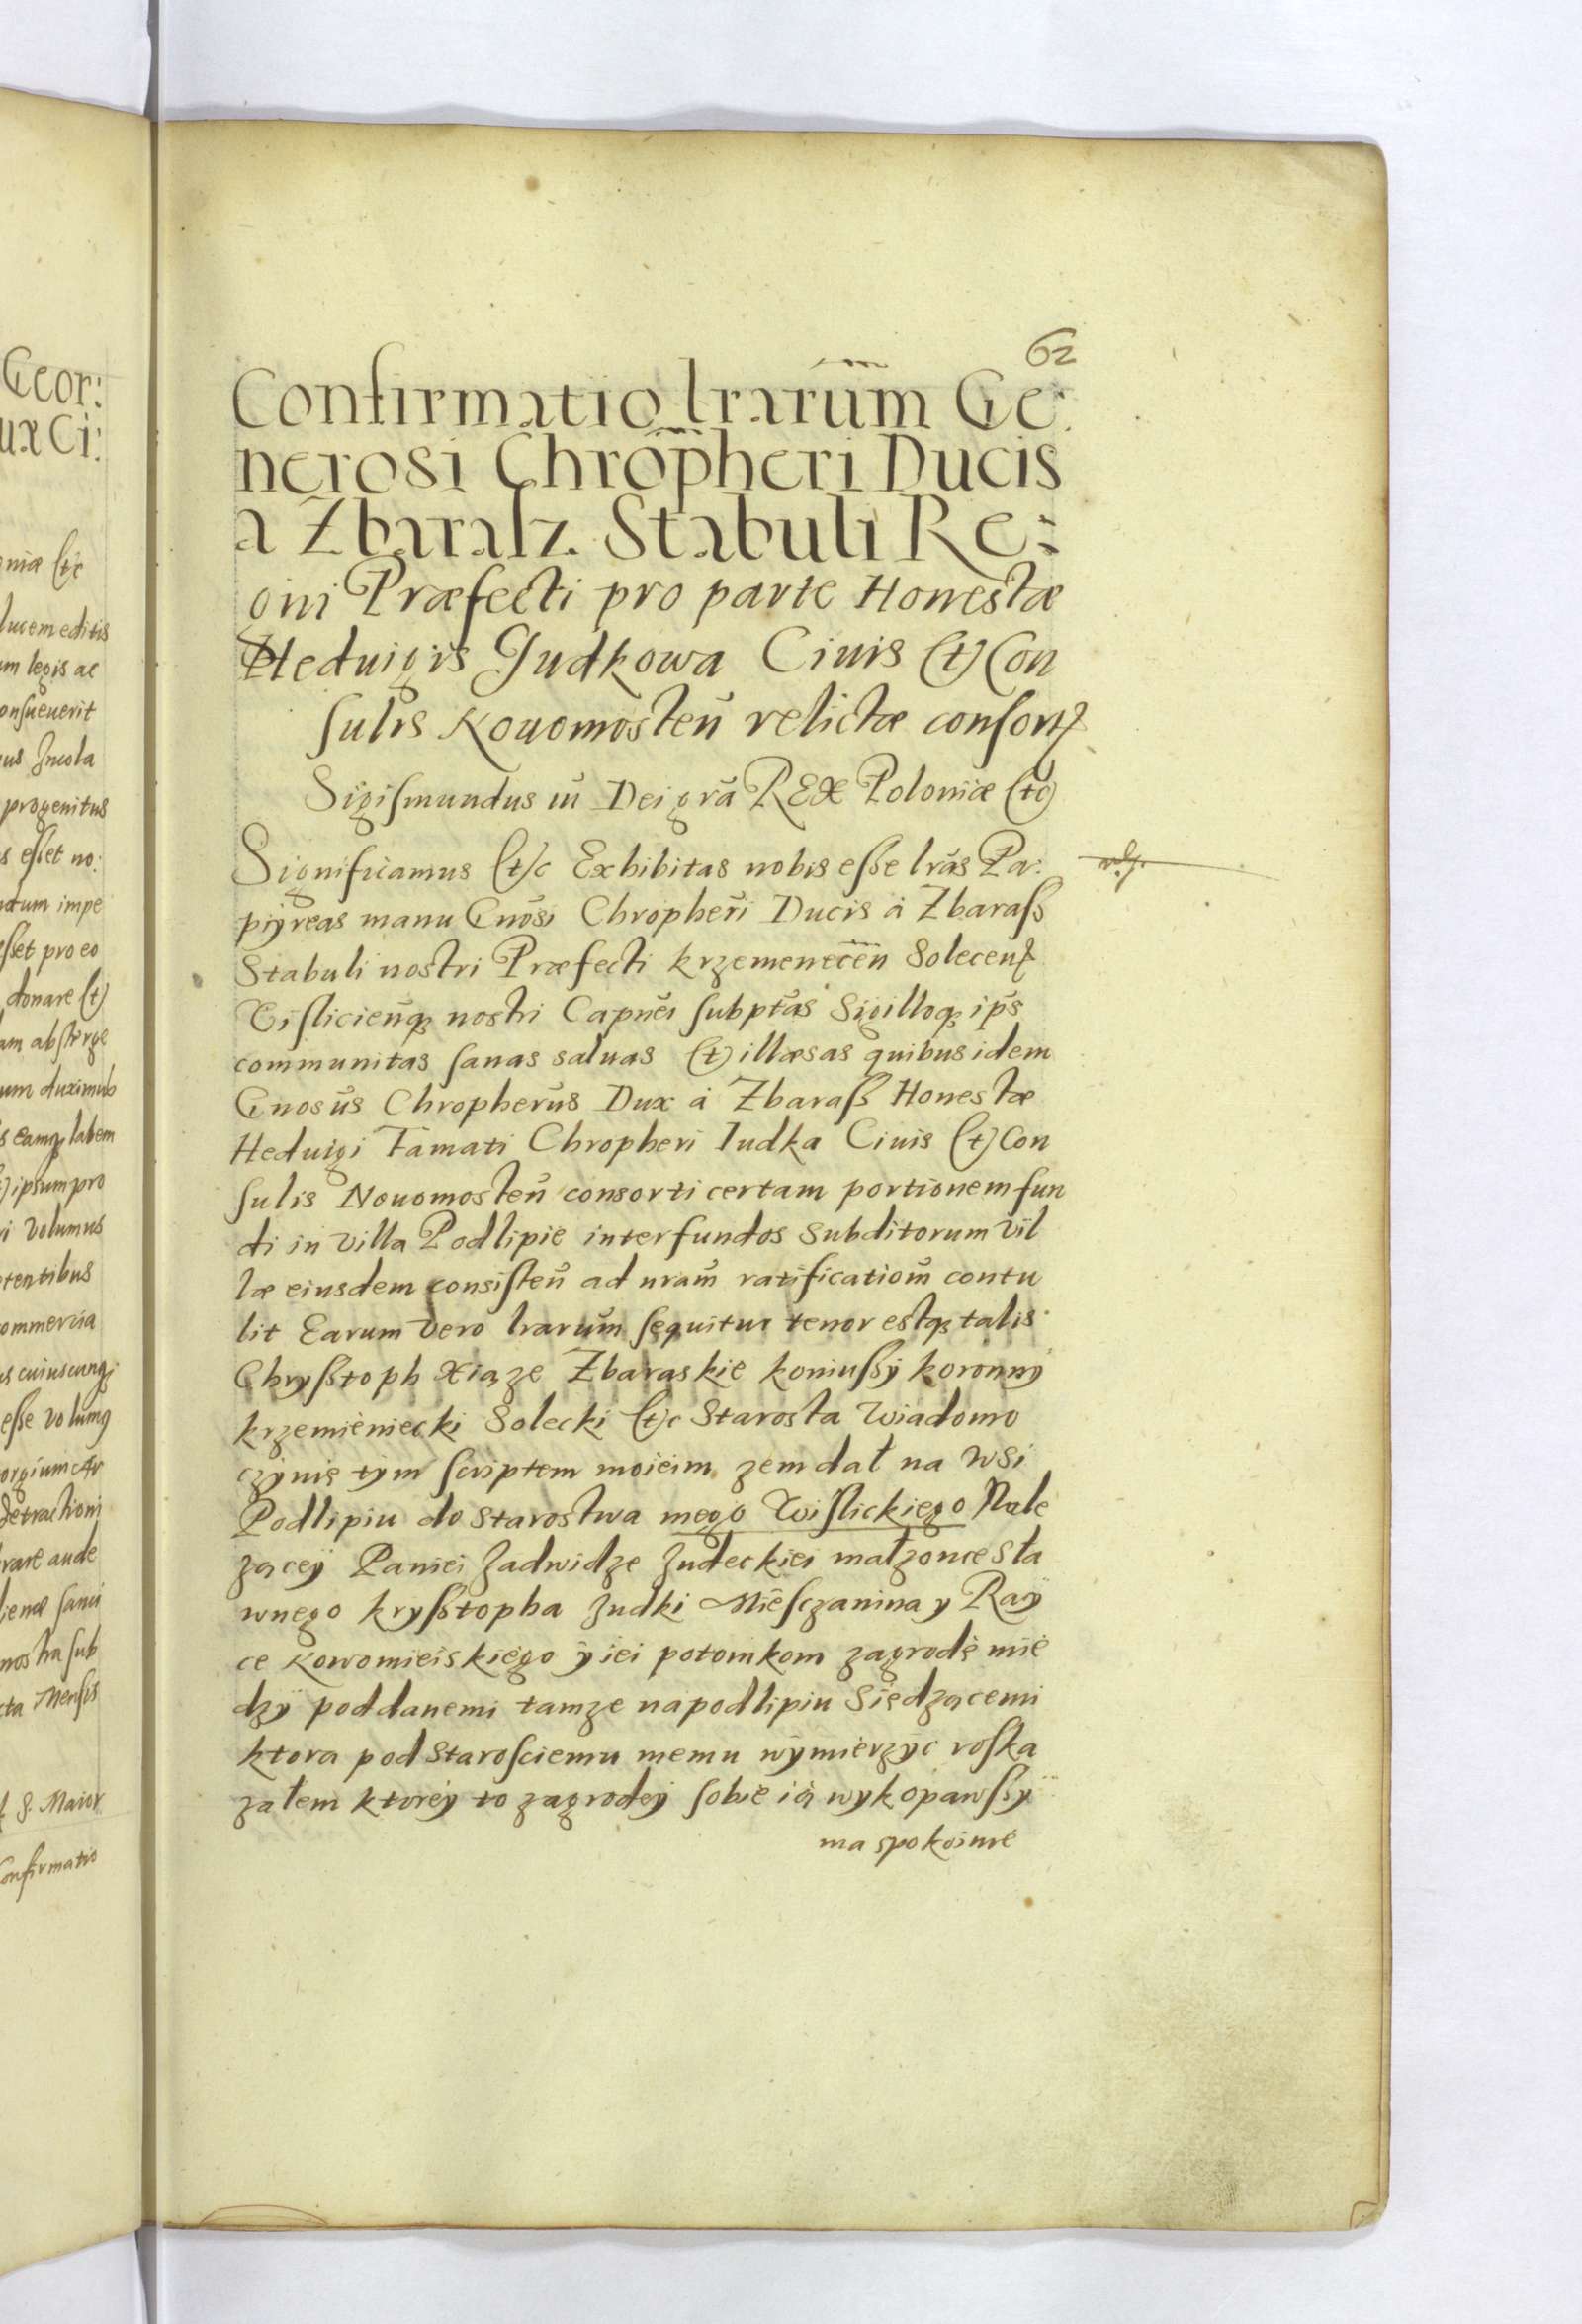 Geor:
ux Ci:
niæ (t)c
lucem editis
um legis ac
onsueuerit
us Incola
progenitus
s esset no:
atum impe
esset pro eo
donare (t)
am absterge
um duximus
s eamq labem
(t) ipsum pro
i volumus
etentibus
ommercia
s cuiuscunq;
esse volumq
orgium
detractioni
rare aude
nostra sub
cta Mensis
S. Maior
Confirmatio
62
Confirmatio lrarum̃ Ge:
nerosi Chrop̃heri Ducis
a Zbarasz. Stabuli Re:
gni Præfecti pro parte Honestæ
Heduigis Judkowa Ciuis (t) Con
sulis Nouomosten̄ relictæ consort
Sigismundus iii Dei grã REX Poloniæ (t)c
Significamus (t)c Exhibitas nobis esse lrãs Pa:
piÿreas manu Gnõsi Chropherĩ Ducis à Zbarass
Stabuli nostri Præfecti krzemenecen̄ Solecen
Vislicien̄q; nostri Capnei subptas Sigilloq; ips
communitas sanas saluas (t) illæsas quibus idem
Gnosus Chropherus Dux à Zbarass Honestæ
Heduigi Famati Chropheri Iudka Ciuis (t) Con
sulis Nouomosten̄ consorti certam portionem fun
di in villa Podlipie inter fundos subditorum vil
læ eiusdem consisten̄ ad nram̄ ratificationẽ contu
lit Earum vero lrarum̃ sequitur tenor estq; talis
Chrysstoph Xiąze Zbaraskie koniussÿ koronnÿ
krzemieniecki Solecki (t)c Starosta Wiadomo
czÿnię tÿm scriptem moieim zem dał na wsi
Podlipiu do starostwa mego Wislickiego Nale
zącey Paniei Jadwidze Judeckiei małzonce sła
wnego krysstopha Judki Miesczanina y Raÿ
ce Nowomieiskiego ÿ iei potomkom zagrodę mie
dzÿ poddanemi tamze na podlipiu Siędzącemi
ktora pod Starosciemu memu wÿmierzÿc roska
załem ktorej to zagrodeÿ sobie ią wykopawssÿ
ma spokoinie